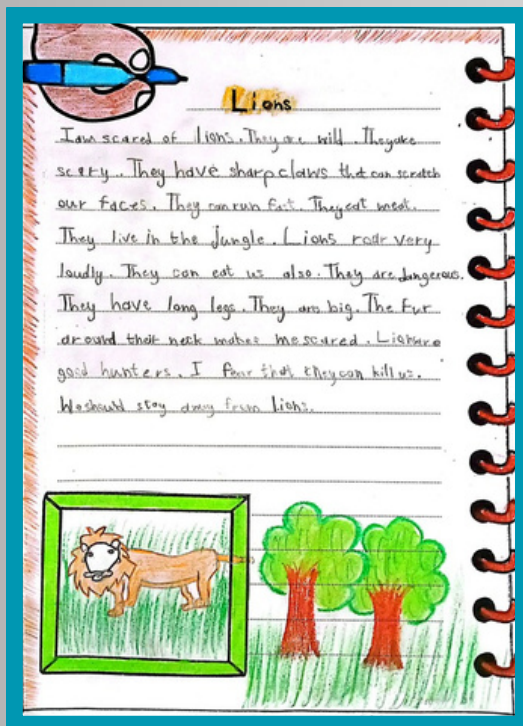 Lions
I am scared of lions. They are wild. They are
scary. They have sharp claws that can scratch
our faces. They can run fast. They eat meat.
They live in the jungle. Lions roar very
loudly. They can eat us also. They are dangerous.
They have long legs. They are big. The fur
around their neck makes me scared. Lions are
good hunters. I fear that they can kill us.
We should stay away from lions.